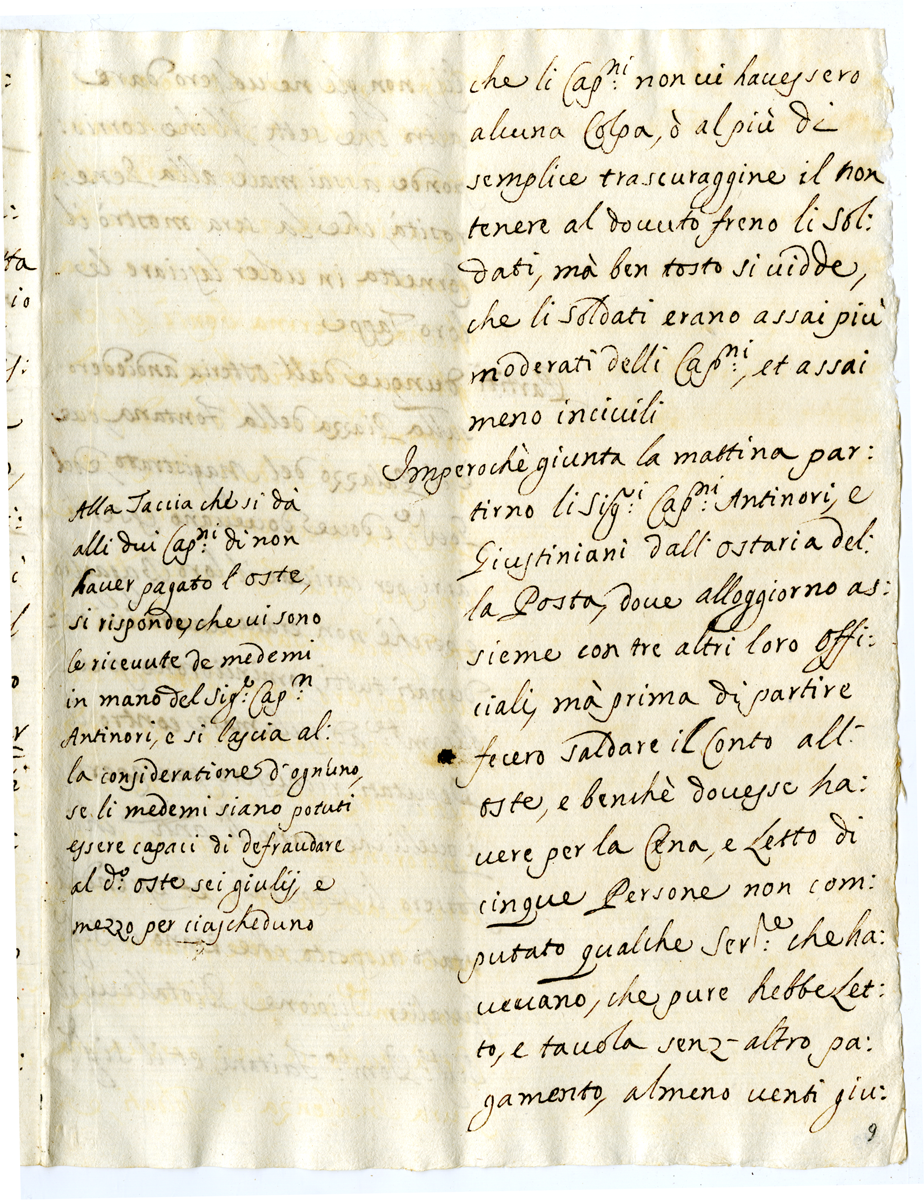 che li Cap.ni non vi havessero
alcuna Colpa, ò al più di
semplice trascuraggine il non
tenere al dovuto freno li Sol:
dati, mà ben tosto si vidde,
che li Soldati erano assai più
moderati delli Cap.ni, et assai
meno incivili
Imperochè giunta la mattina par:
tirno li Sig.ri Cap.ni Antinori, e
Giustiniani dall'ostaria del:
la Posta, dove alloggiorno as:
sieme con tre altri loro Offi:
ciali, mà prima di partire
fecero saldare il Conto all'
oste, e benchè dovesse ha:
vere per la Cena, e Letto di
cinque Persone non com:
putato qualche Ser.re che ha:
vevano, che pure hebbe Let:
to, e tavola senz'altro pa:
gamento, almeno venti giu:
9
Alla Taccia che si dà
alli dui Cap.ni di non
haver pagato l'oste,
si risponde, che vi sono
le ricevute de medemi
in mano del Sig.r Cap.n
Antinori, e si lascia al:
la consideratione d'ogn'uno,
se li medemi siano potuti
essere capaci di defraudare
al d.o oste sei giulij, e
mezzo per ciascheduno